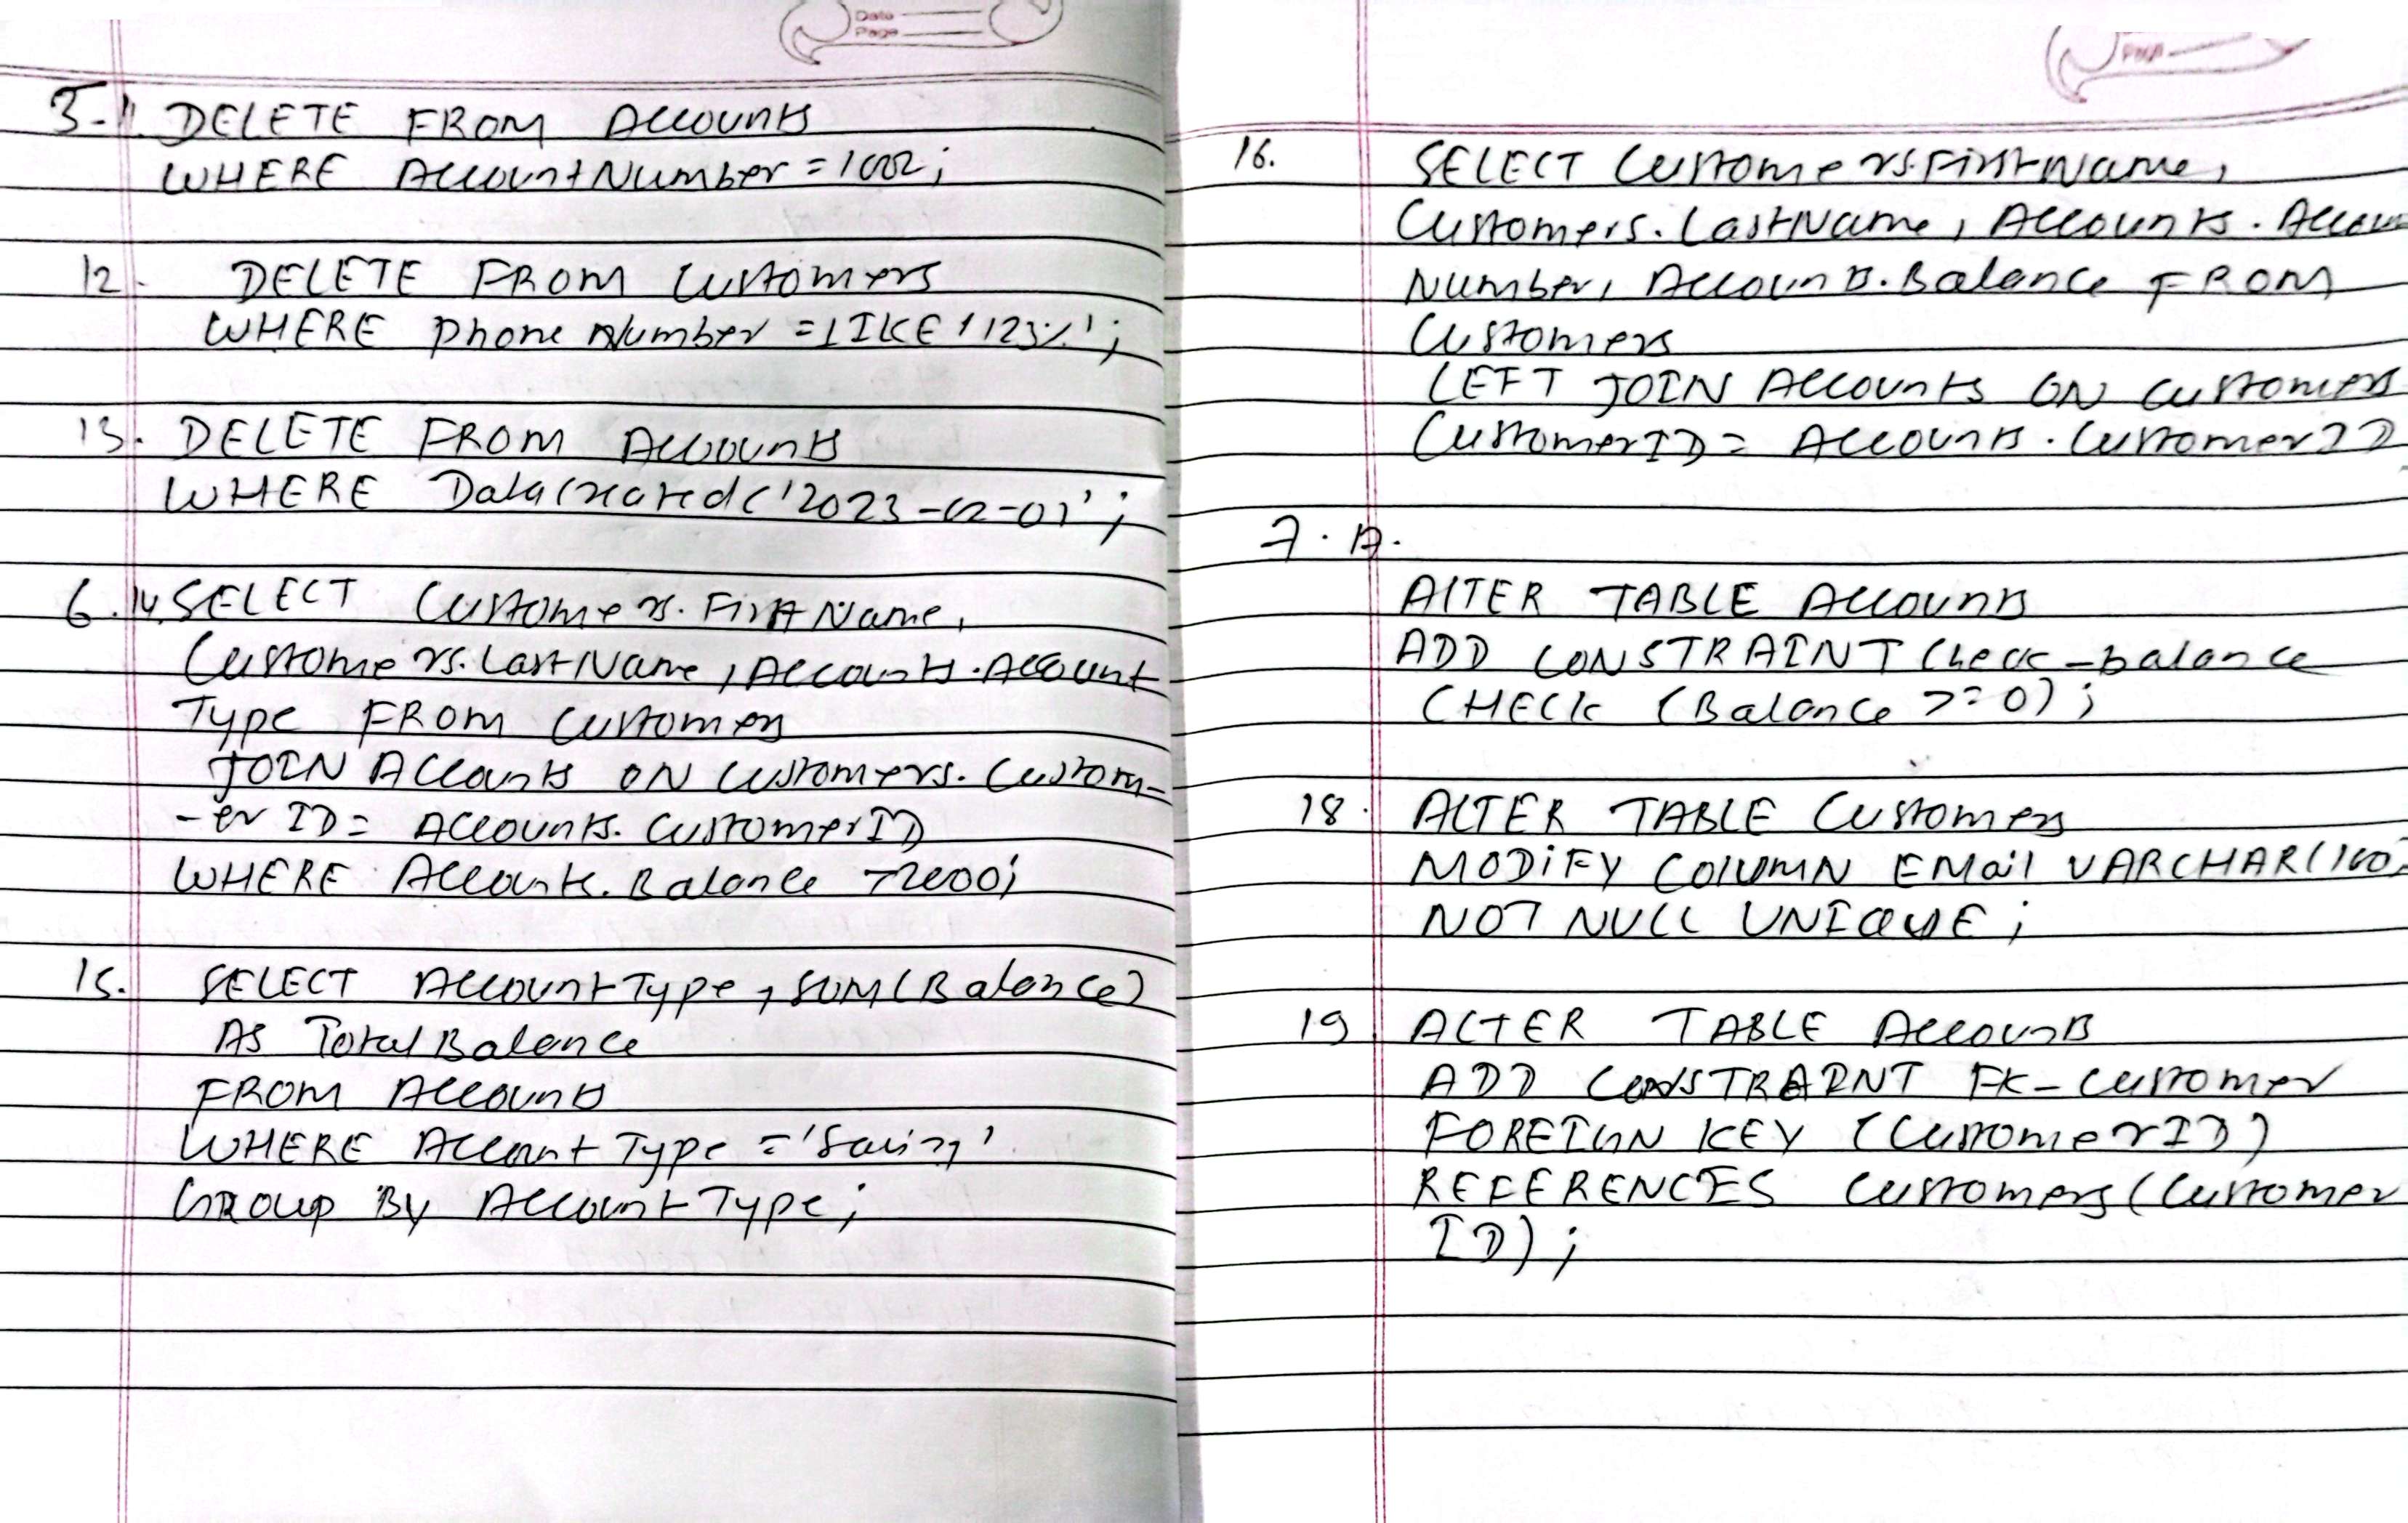 Date
Page
5-11. DELETE FROM Accounts
WHERE AccountNumber = 1002;
12. DELETE FROM Customers
WHERE phone Number = LIKE '123%';
13. DELETE FROM Accounts
WHERE DataCreated < '2023-02-01';
6.14. SELECT Customers.FirstName,
Customers.LastName, Accounts.Account
Type FROM Customers
JOIN Accounts ON Customers.Custom-
-er ID = Accounts.CustomerID
WHERE Accounts.Balance >2000;
15. SELECT AccountType, SUM(Balance)
AS TotalBalance
FROM Accounts
WHERE Account Type = 'Saving'
Group By Account Type;
Page
16. SELECT Customers.FirstName,
Customers.LastName, Accounts.Accou
Number, Accounts.Balance FROM
Customers
LEFT JOIN Accounts ON Customers
CustomerID = Accounts.CustomerID
7. A.
ALTER TABLE Accounts
ADD CONSTRAINT Check_balance
CHECK (Balance >= 0);
18. ALTER TABLE Customers
MODIFY COLUMN EMail VARCHAR(100)
NOT NULL UNIQUE;
19. ALTER TABLE Accounts
ADD CONSTRAINT FK-Customer
FOREIGN KEY (CustomerID)
REFERENCES Customers(Customer
ID);